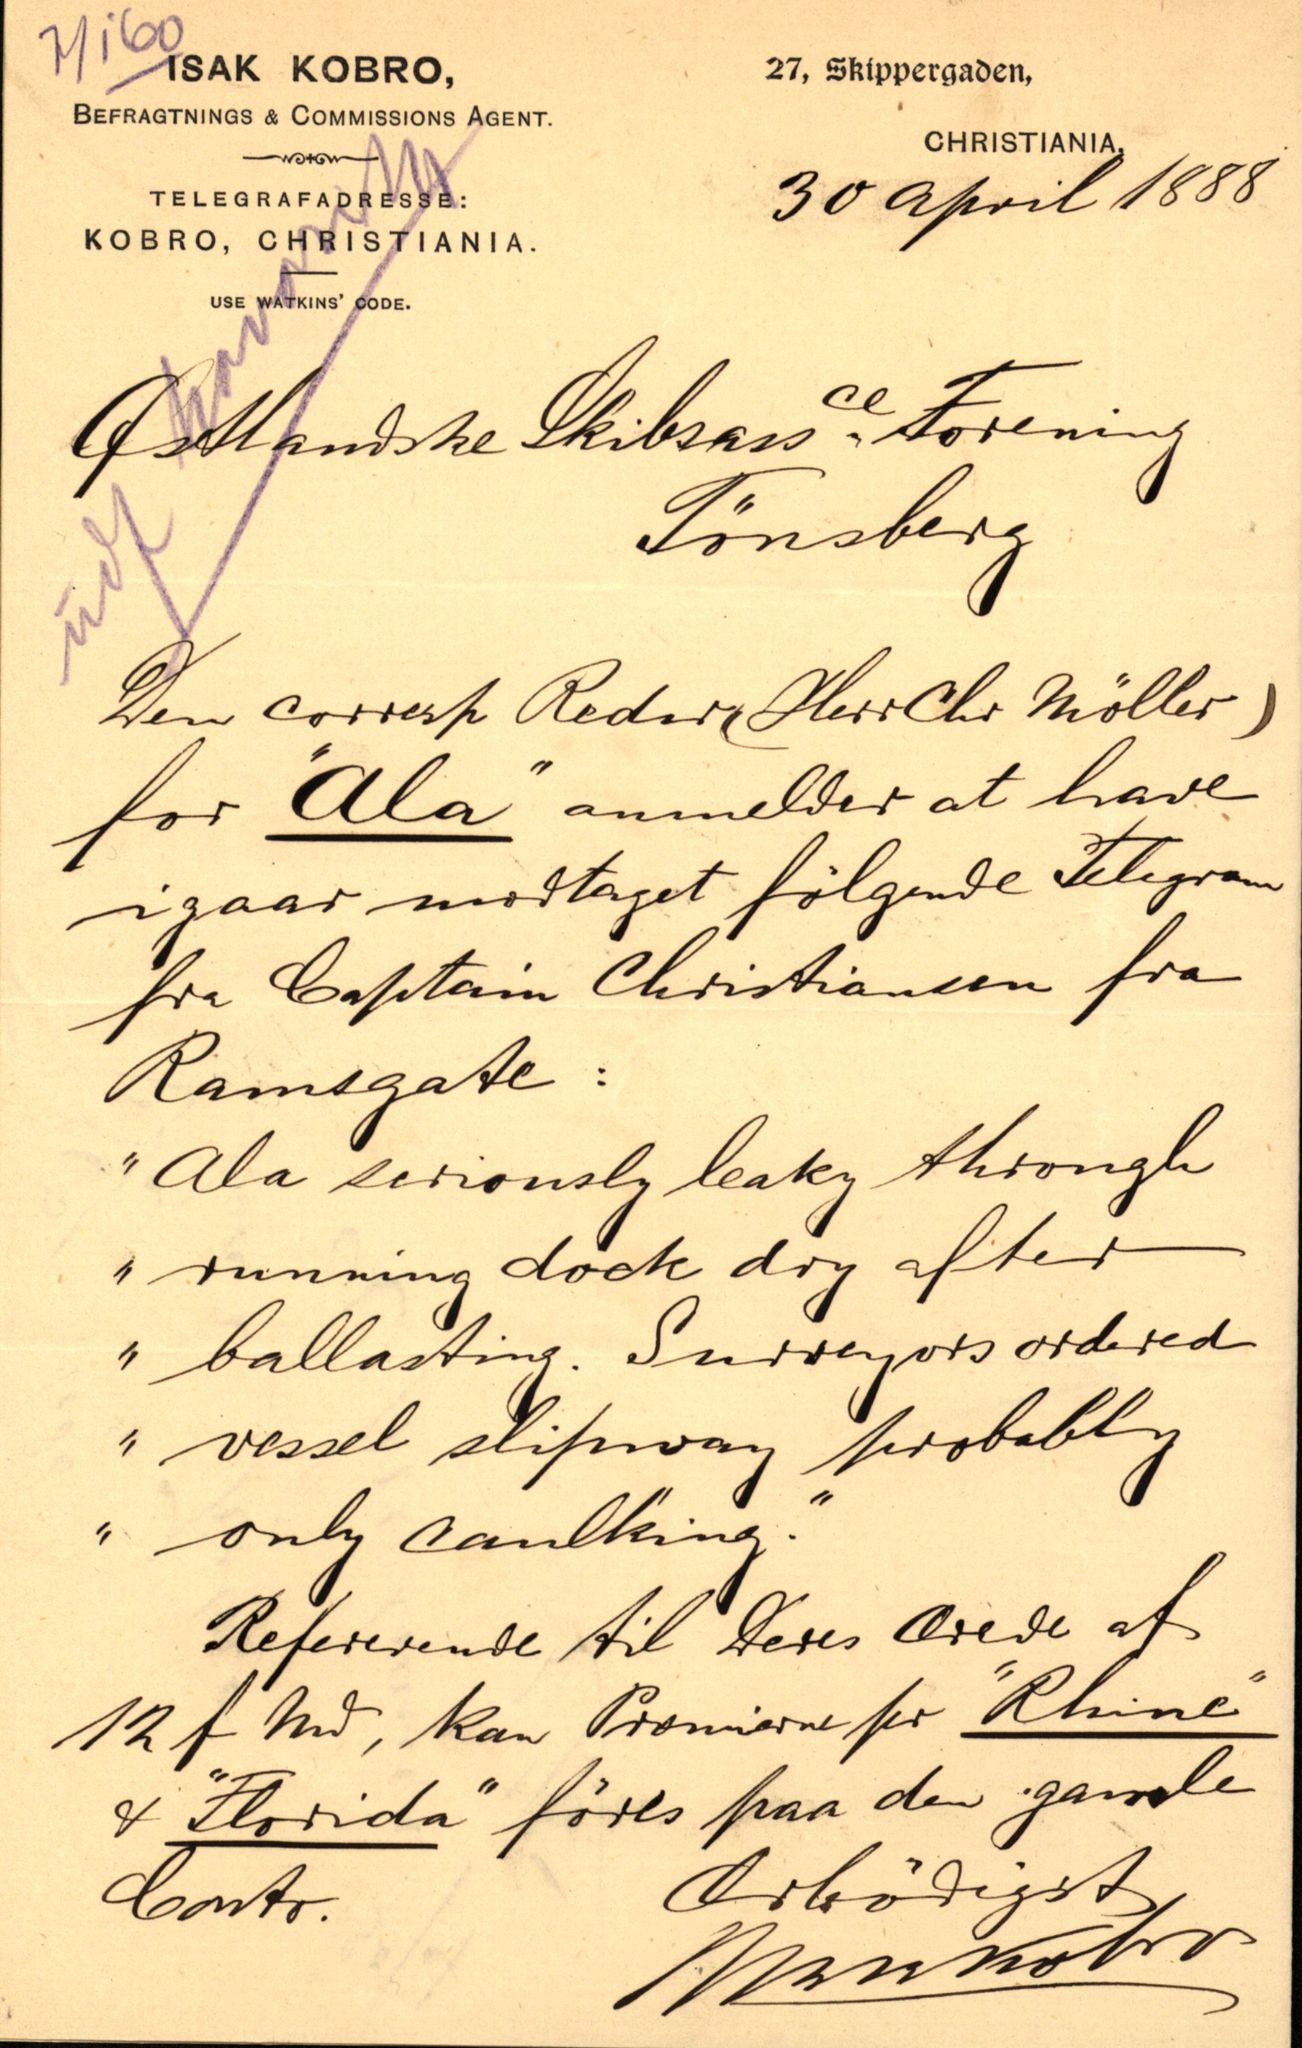 7/160
ISAK KOBRO,
BEFRAGTNINGS & COMMISSIONS AGENT.
TELEGRAFADRESSE:
KOBRO, CHRISTIANIA.
USE WATKINS' CODE.
27, Skippergaden,
CHRISTIANIA,
30 april 1888
Østlandske Skibsass ce Forening
Tönsberg
Den corresp Reder (Herr Chr Möller)
for "Ala" anmelder at have
igaar modtaget fölgende Telegram
fra Captain Christiansen fra
Ramsgate :
" Ala seriously leaky through
" running dock dry after
" ballasting. Surveyors ordered
" vessel slipway probably
" only caulking."
Refererende til Deres Ærede af
12 f Md, kan Præmierne pr "Rhine"
& "Florida" föres paa den gamle
Conto.
Ærbödigst
Isak Kobro